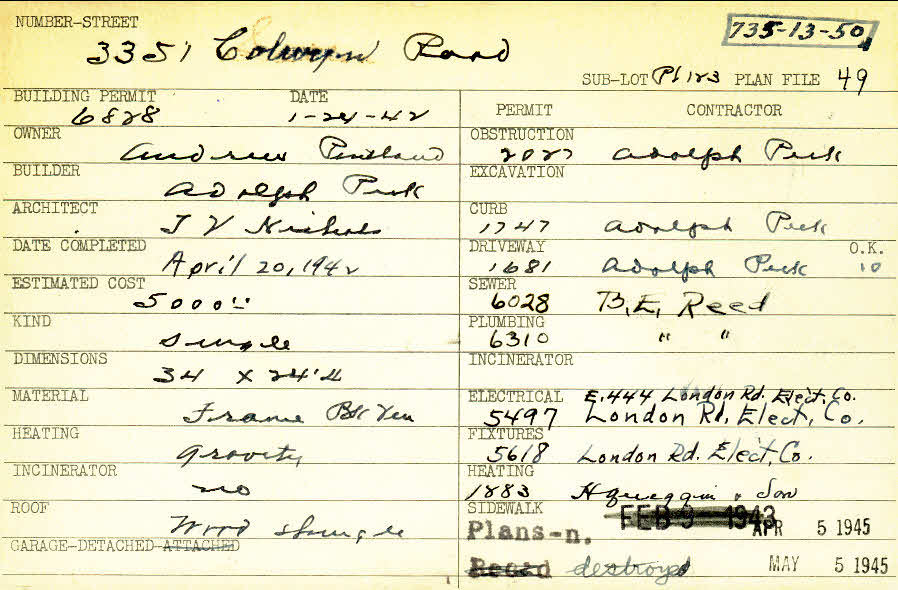 NUMBER-STREET
3351 Colwyn Road
735-13-50
SUB-LOT Pt 123 PLAN FILE 49
BUILDING PERMIT DATE
6828 1-24-42
PERMIT CONTRACTOR
OWNER
Andrew Pentland
OBSTRUCTION
2027 Adolph Peck
BUILDER
Adolph Peck
EXCAVATION
ARCHITECT
J V Nichols
CURB
1747 Adolph Peck
DATE COMPLETED
April 20, 1942
DRIVEWAY O.K.
1681 Adolph Peck 10
ESTIMATED COST
5000
SEWER
6028 B. E. Reed
KIND
Single
PLUMBING
6310 " "
DIMENSIONS
34 x 24'4
INCINERATOR
MATERIAL
Frame Bk Ven
ELECTRICAL E.444 London Rd. Elect. Co.
5497 London Rd. Elect. Co.
HEATING
Gravity
FIXTURES
5618 London Rd. Elect. Co.
INCINERATOR
no
HEATING
1883 & Son
ROOF
Wood Shingle
SIDEWALK
FEB 9 1943
Plans-n. APR 5 1945
GARAGE-DETACHED-ATTACHED
Record destroyed MAY 5 1945